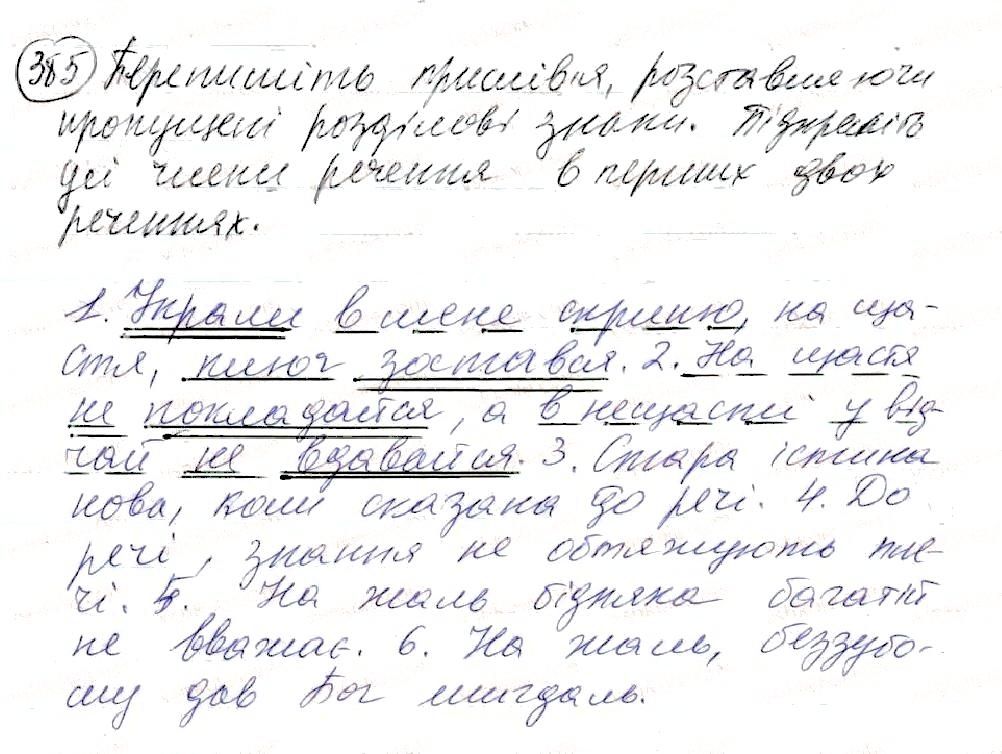 385 Перепишіть прислів'я, розставляючи
пропущені розділові знаки. Підкресліть
усі члени речення в перших двох
реченнях.
1. Украли в мене скриню, на ща-
стя, ключ зостався. 2. На щастя
не покладайся, а в нещасті у від-
чай не вдавайся. 3. Стара істина
нова, коли сказана до речі. 4. До
речі, знання не обтяжують пле-
чі. 5. На жаль бідняка багатій
не вважає. 6. На жаль, беззубо-
му дав Бог мигдаль.